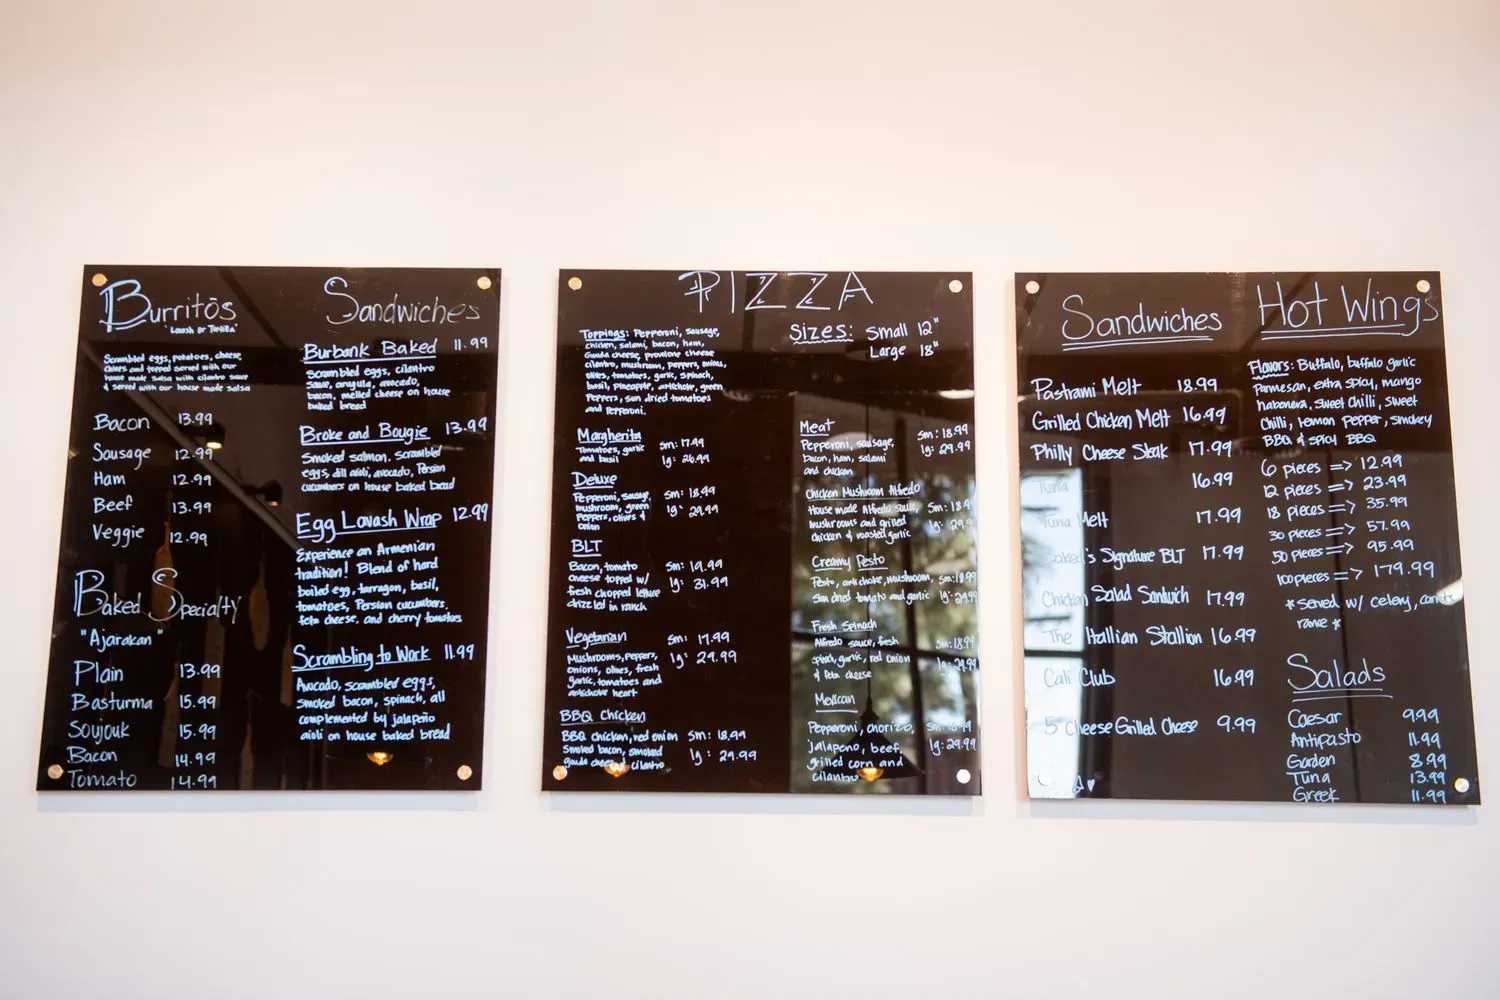 Burritos
"Lavash or Tortilla"
Scrambled eggs, potatoes, cheese,
chives and topped served with our
house made salsa with cilantro sauce
& served with our house made salsa
Bacon 13.99
Sausage 12.99
Ham 12.99
Beef 13.99
Veggie 12.99
Baked Specialty
"Ajarakan"
Plain 13.99
Basturma 15.99
Soujouk 15.99
Bacon 14.99
Tomato 14.99
Sandwiches
Burbank Baked 11.99
Scrambled eggs, cilantro
sauce, arugula, avocado,
bacon, melted cheese on house
baked bread
Broke and Bougie 13.99
Smoked salmon, scrambled
eggs, dill aioli, avocado, Persian
cucumbers on house baked bread
Egg Lavash Wrap 12.99
Experience an Armenian
tradition! Blend of hard
boiled egg, tarragon, basil,
tomatoes, Persian cucumbers,
feta cheese, and cherry tomatoes
Scrambling to Work 11.99
Avocado, scrambled eggs,
smoked bacon, spinach, all
complemented by jalapeño
aioli on house baked bread
PIZZA
Toppings: Pepperoni, sausage,
chicken, salami, bacon, ham,
Gouda cheese, provolone cheese
cilantro, mushroom, peppers, onions,
olives, tomatoes, garlic, spinach,
basil, pineapple, artichoke, green
peppers, sun dried tomatoes
and pepperoni.
Sizes: Small 12"
Large 18"
Margherita sm: 17.99
Tomatoes, garlic
and basil lg: 26.99
Deluxe
Pepperoni, sausage, sm: 18.99
mushroom, green
peppers, olives & lg: 29.99
onion
BLT
Bacon, tomato sm: 19.99
cheese topped w/
fresh chopped lettuce lg: 31.99
drizzled in ranch
Vegetarian sm: 17.99
Mushrooms, peppers,
onions, olives, fresh lg: 29.99
garlic, tomatoes and
artichoke heart
BBQ Chicken
BBQ chicken, red onion sm: 18.99
smoked bacon, smoked
gouda cheese, cilantro lg: 29.99
Meat sm: 18.99
Pepperoni, sausage, lg: 29.99
bacon, ham, salami
and chicken
Chicken Mushroom Alfredo
House made Alfredo sauce, sm: 18.9
mushrooms and grilled lg: 29.9
chicken & roasted garlic
Creamy Pesto
Pesto, artichoke, mushroom, sm: 18.99
Sun dried tomato and garlic lg: 29.99
Fresh Spinach
Alfredo sauce, fresh sm: 18.99
spinach, garlic, red onion lg: 29.99
& feta cheese
Mexican
Pepperoni, chorizo, sm: 18.99
jalapeno, beef, lg: 29.99
grilled corn and
cilantro
Sandwiches
Pastrami Melt 18.99
Grilled Chicken Melt 16.99
Philly Cheese Steak 17.99
Tuna 16.99
Tuna Melt 17.99
Baked's Signature BLT 17.99
Chicken Salad Sandwich 17.99
The Itallian Stallion 16.99
Cali Club 16.99
5 Cheese Grilled Cheese 9.99
Hot Wings
Flavors: Buffalo, buffalo garlic
Parmesan, extra spicy, mango
habanera, sweet chilli, sweet
Chilli, Lemon Pepper, smokey
BBQ & spicy BBQ
6 pieces => 12.99
12 pieces => 23.99
18 pieces => 35.99
30 pieces => 57.99
50 pieces => 95.99
100 pieces => 179.99
*served w/ celery, carrots
rance *
Salads
Caesar 9.99
Antipasto 11.99
Garden 8.99
Tuna 13.99
Greek 11.99